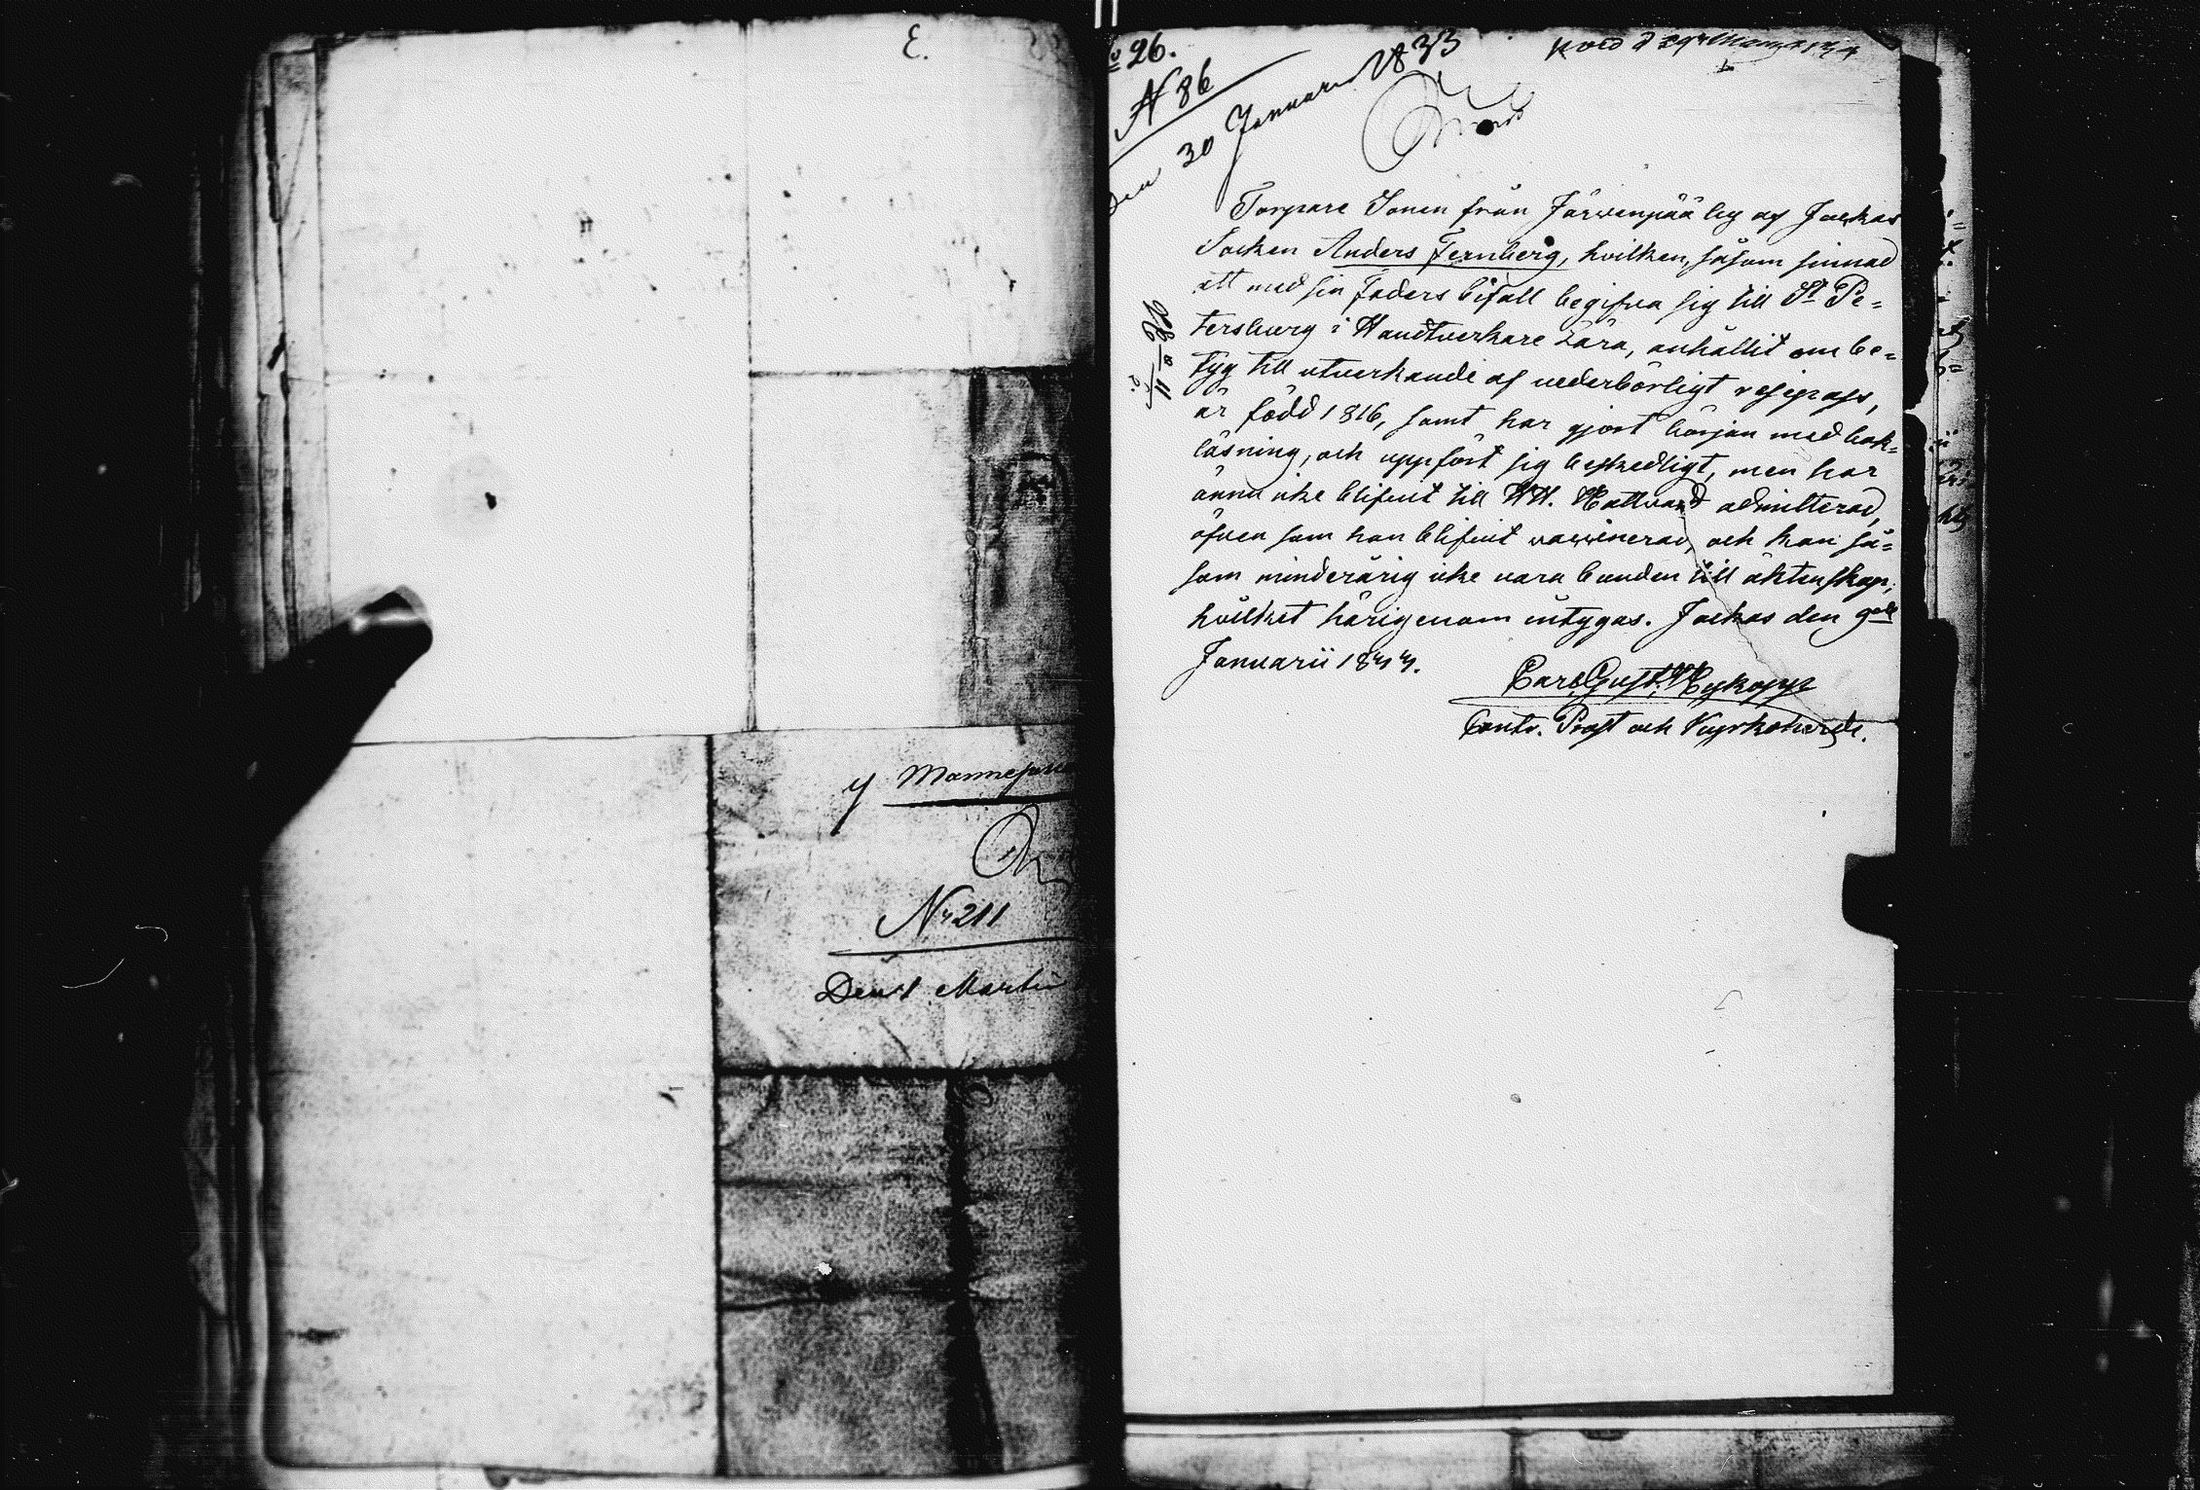 E.
Nr 211
Den 1 Martii
No 26.
N 86
Den 30 Januari 1833
Torpare Sonen från Järwenpää by af Jockas
Socken Anders Fernberg, hvilken, såsom sinnad
att med sin Faders bifall begifva sig till St Pe=
tersburg i Handtverkare Lära, anhållit om be=
tyg till utverkande af vederbörligt respass,
är född 1816, samt har gjort början med bok=
läsning, och uppfört sig beskedligt, men har
ännu icke blifvit till HH. Nattvard admitterad,
äfven som han blifvit vaccinerad, och kan så=
som minderårig icke vara bunden till äktenskap;
hvilket härigenom intygas. Jockas den 9de
Januarii 1833.
Carl Gust. Wykopp
Contr. Prost och Kyrkoherde.